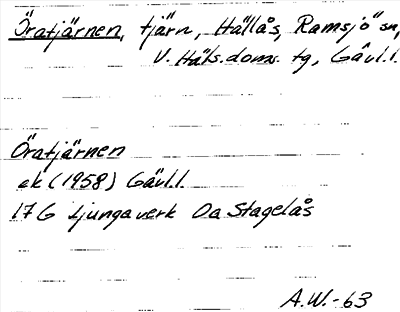 Öratjärnen, tjärn, Hällås, Ramsjö sn,
V. Häls. doms. tg, Gävl. l.
Öratjärnen
ek (1958) Gävl. l.
17 G Ljungaverk Da Stagelås
A.W.-63